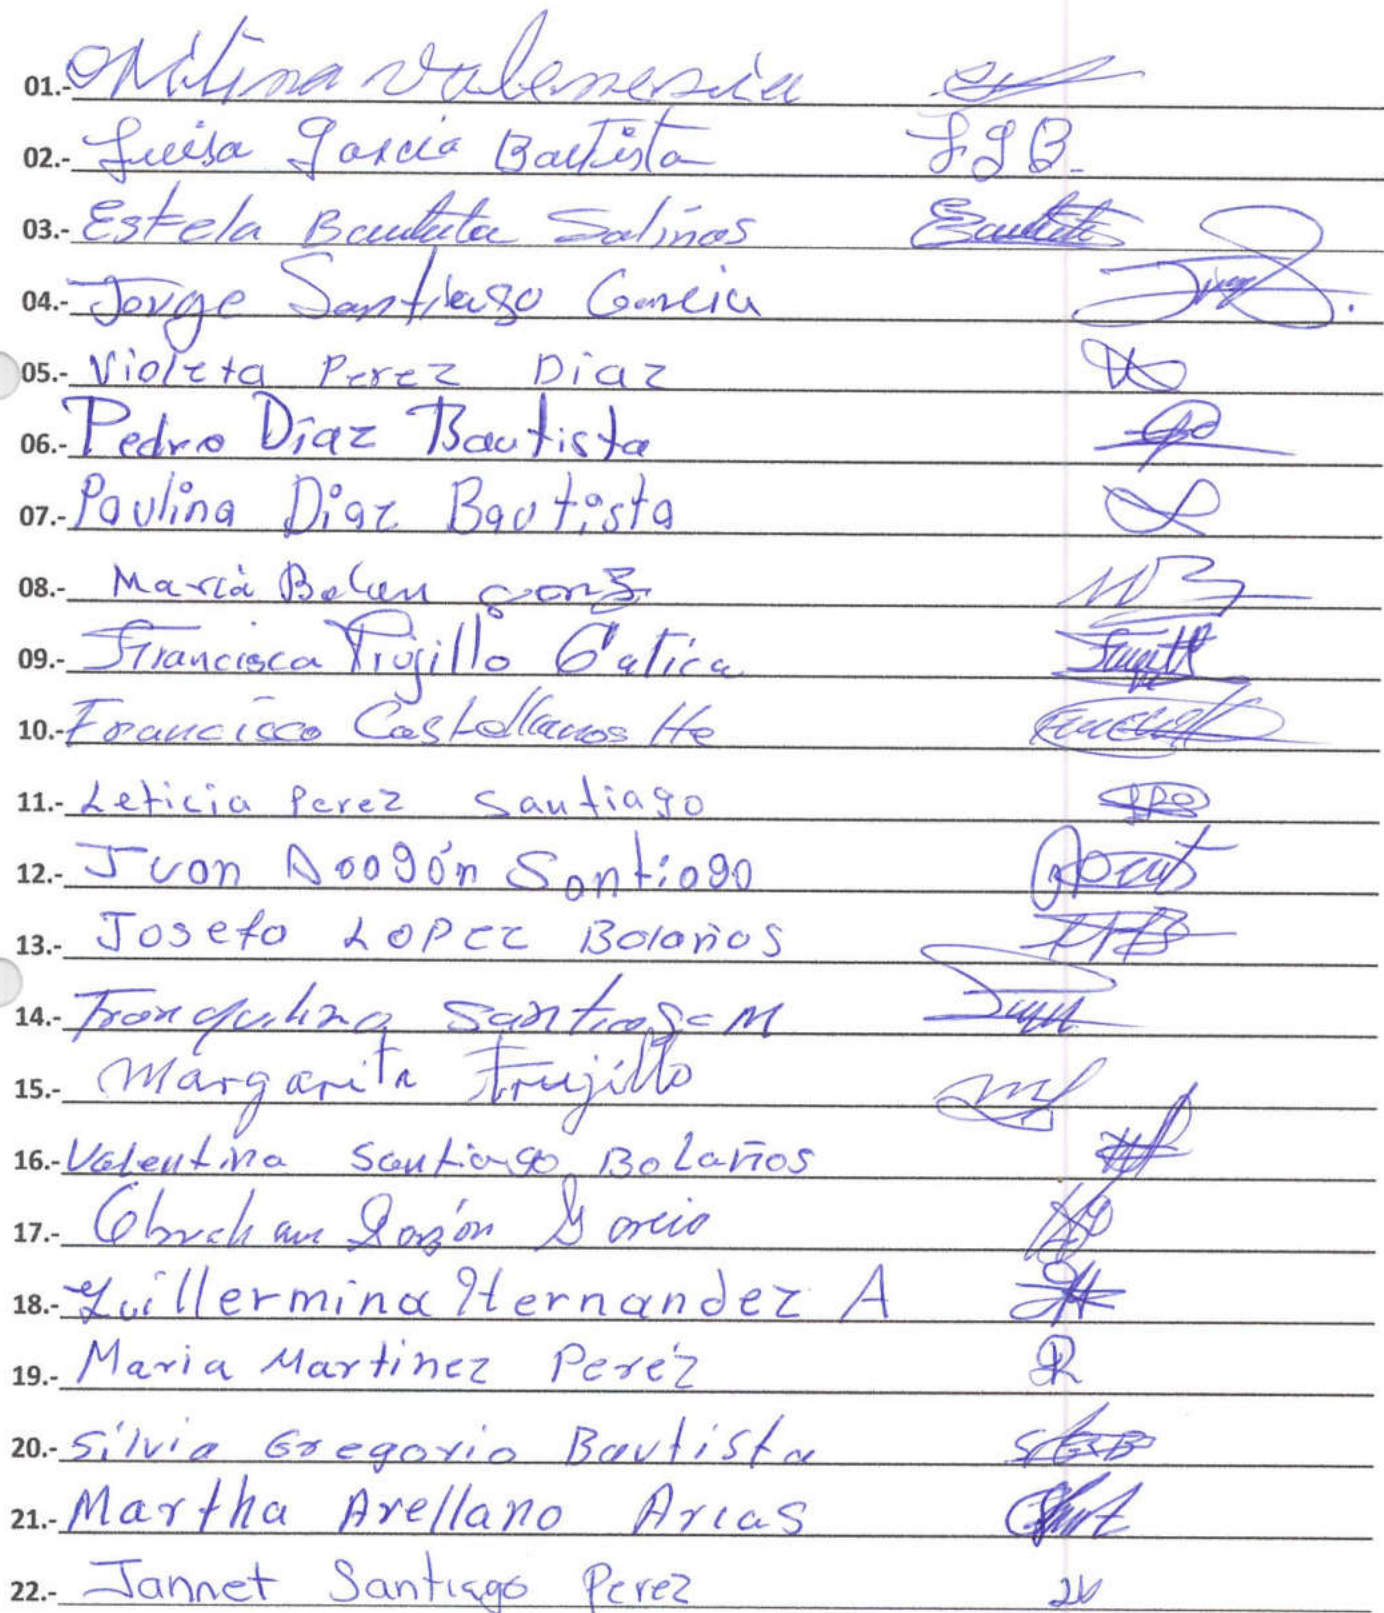 01.- Valenesia
02.- Luisa Garcia Bautista LGB.
03.- Estela Bautista Salinas
04.- Jorge Santiago Garcia
05.- Violeta Perez Diaz
06.- Pedro Díaz Bautista
07.- Paulina Diaz Bautista
08.- Maria Belen
09.- Francisca Trujillo Gatica
10.- Francisco Castellanos He
11.- Leticia Perez Santiago
12.- Juan Aragón Santiago
13.- Josefa LOPEZ Bolaños
14.- Tranquilina Santiago M
15.- Margarita Trujillo
16.- Valentina Santiago Bolaños
17.- Garcia
18.- Guillermina Hernandez A
19.- Maria Martinez Peréz
20.- Silvia Gregorio Bautista
21.- Martha Arellano Arias
22.- Jannet Santiago Perez